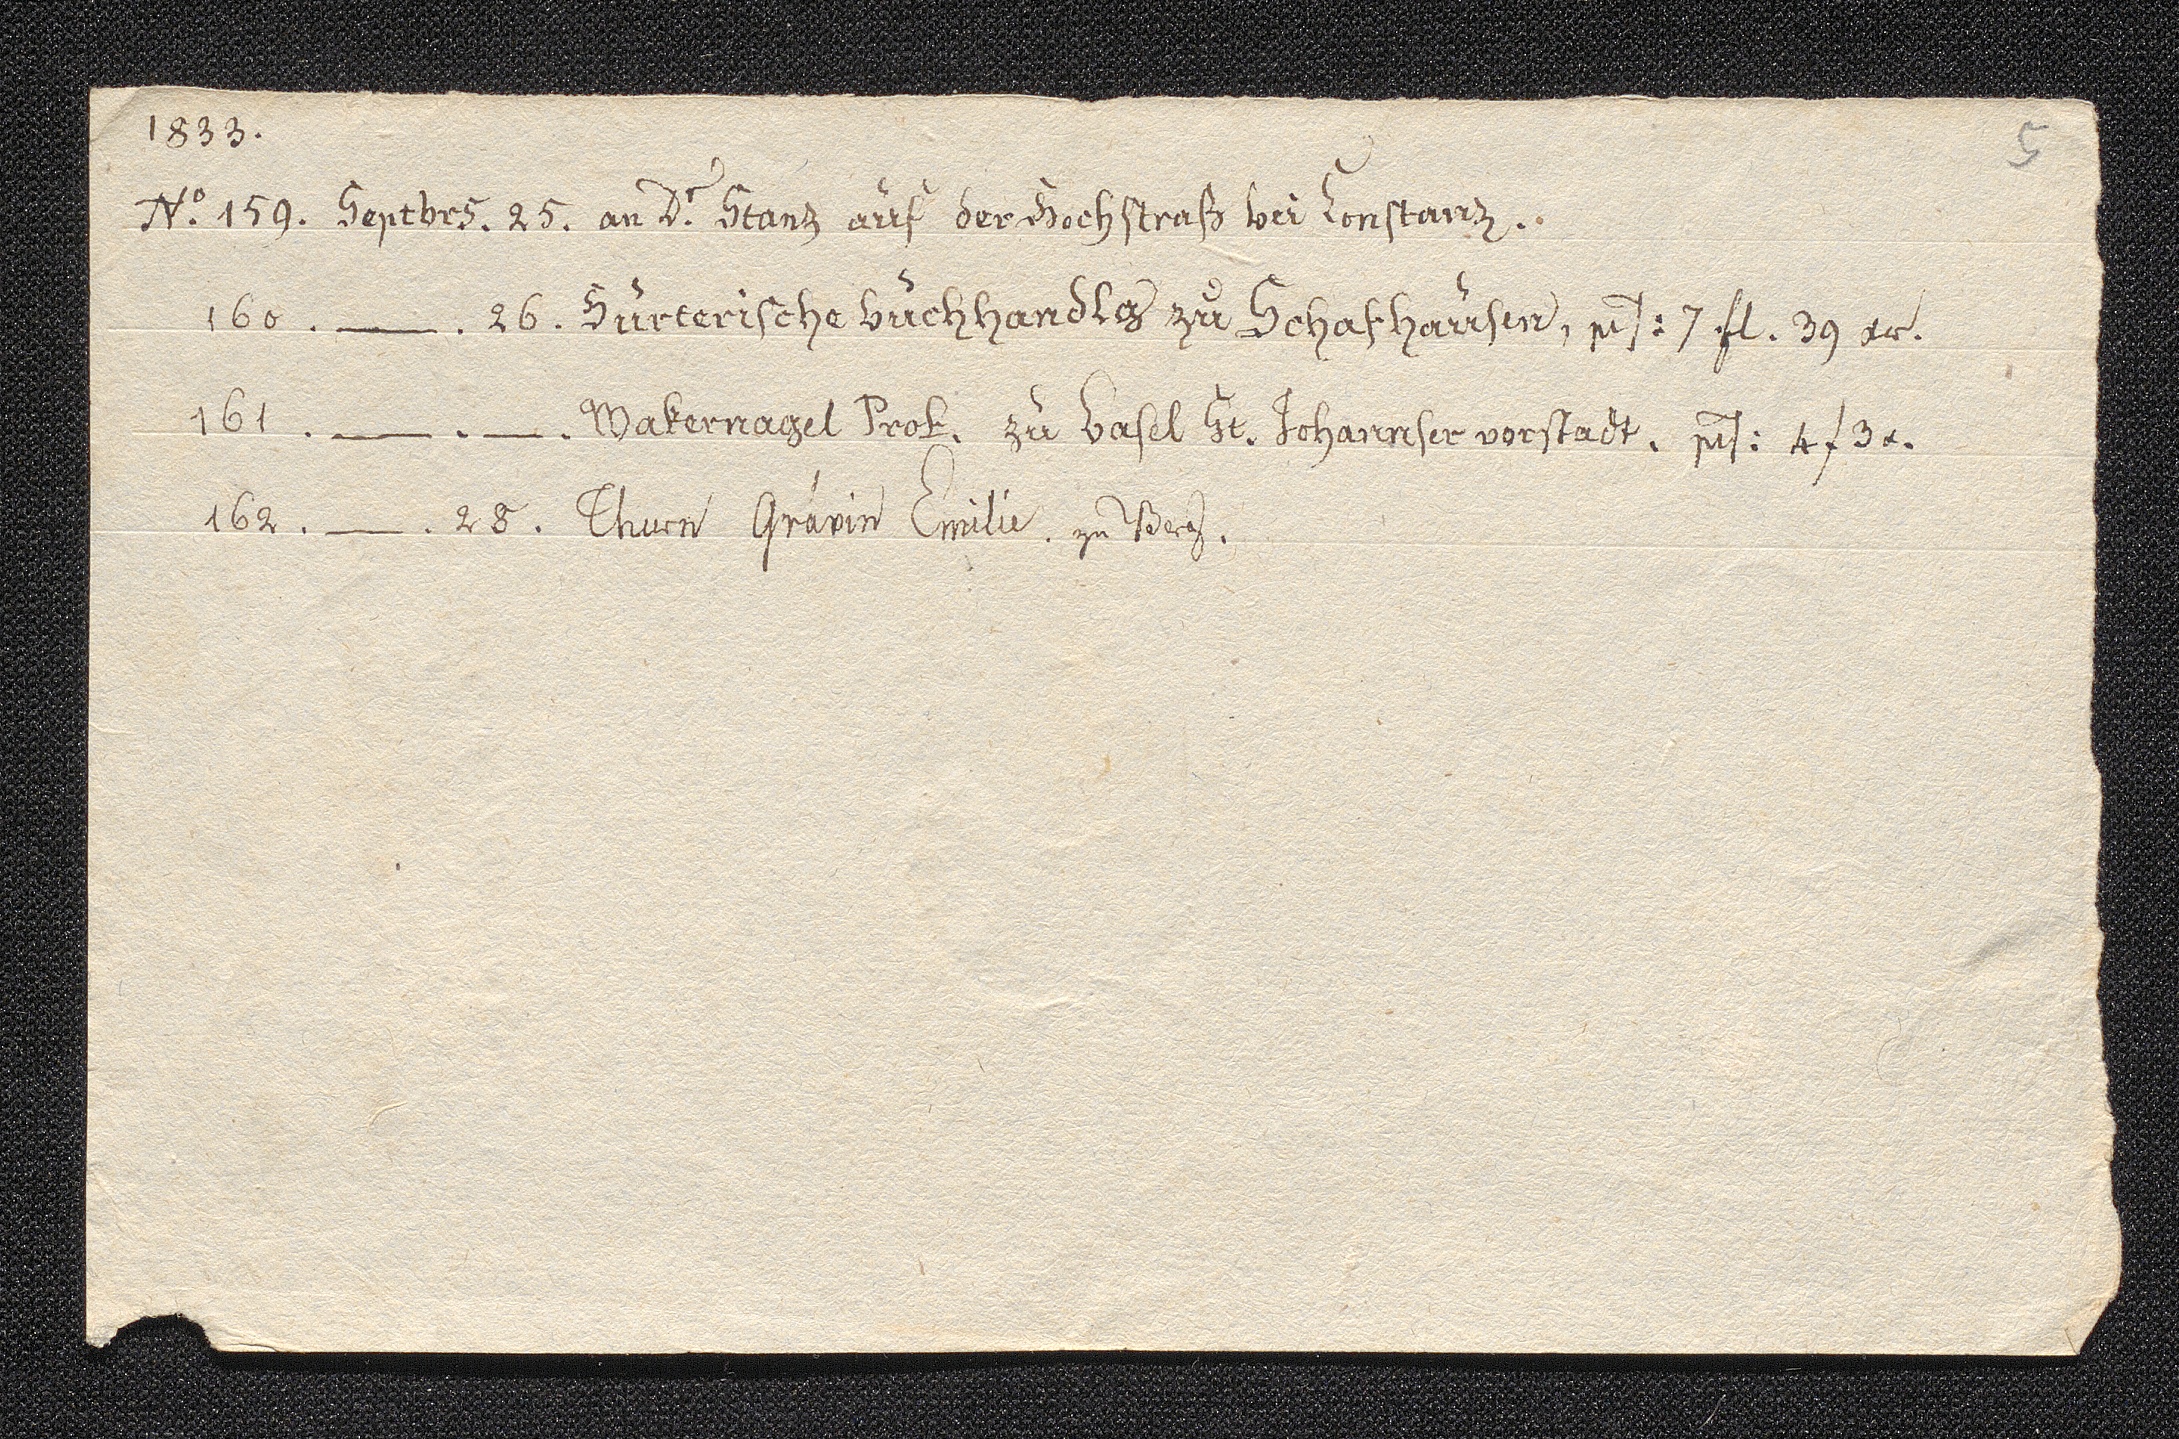 1833.
5
N.º 159. Septbrs. 25. an D.r Stanz auf der Hochstraß bei Constanz..
160. —. 26. Hurterische buchhandlg zu Schafhausen, 7 fl. 39 xr.
161. —. —. Wakernagel Prof. zu basel St. Johannser vorstadt. 4 f 3 x.
162. —. 28. Thurn Grävin Emilie. zu Berg.